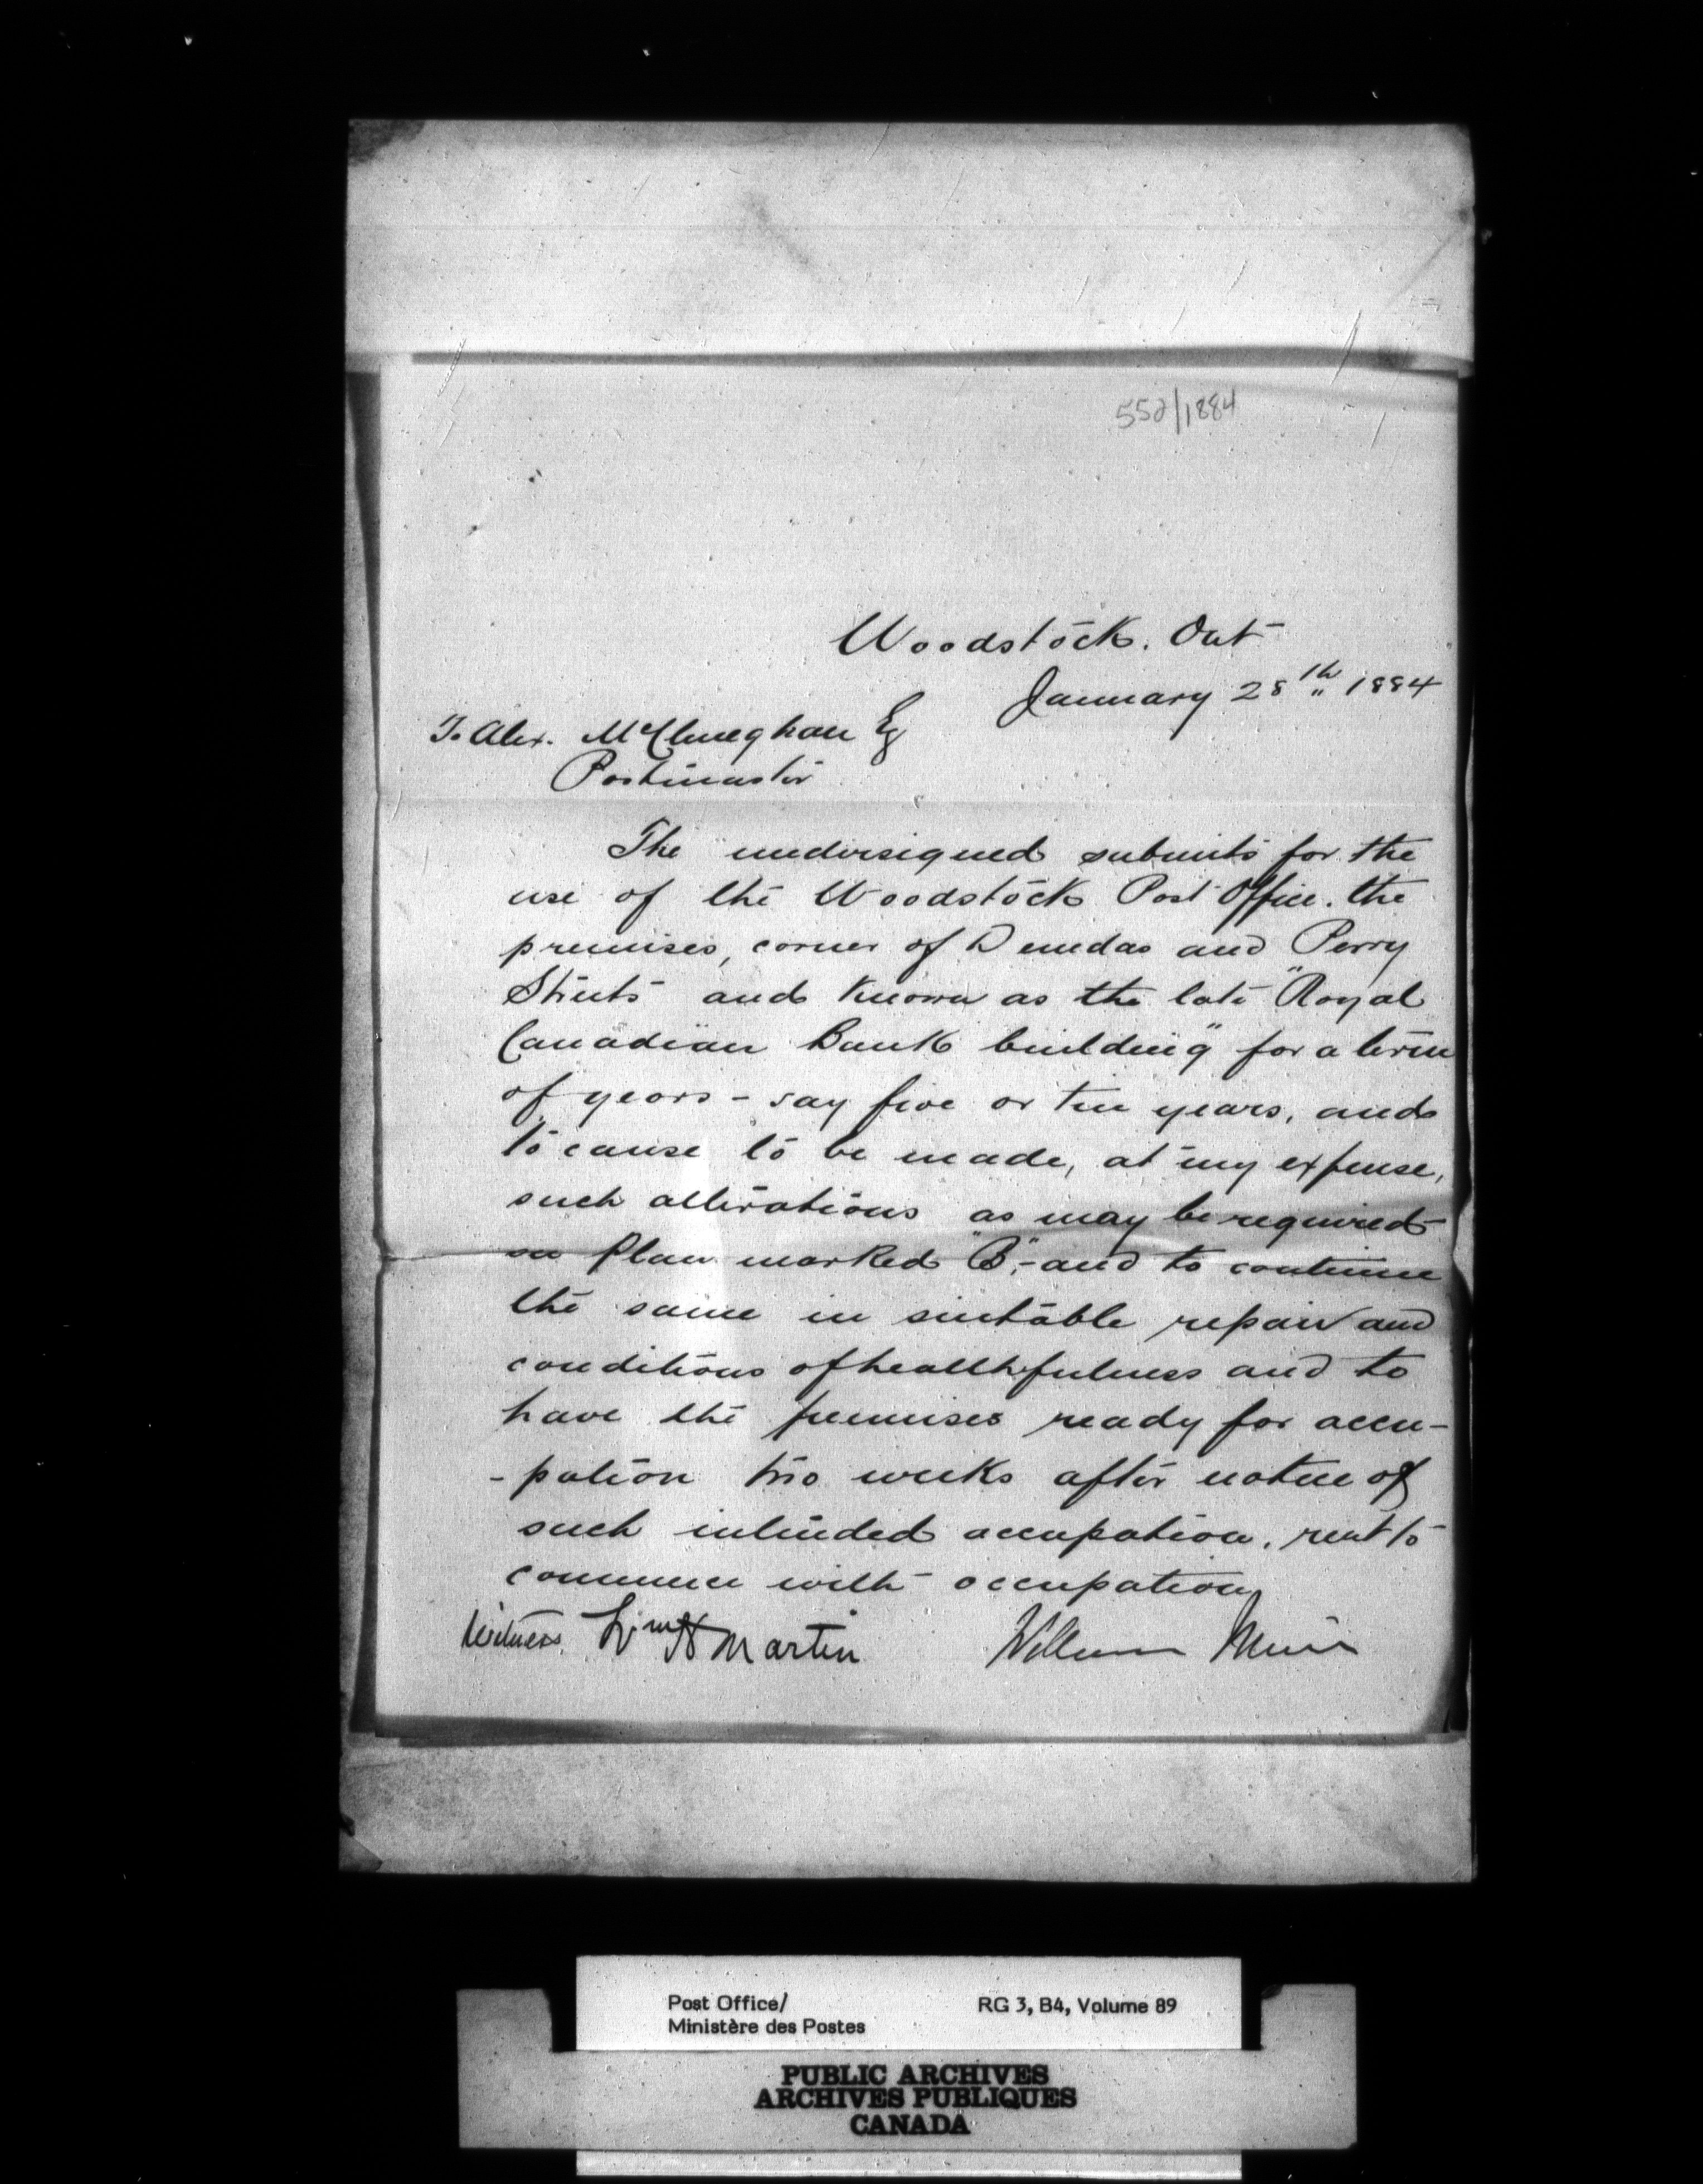 552/1884
Woodstock. Ont
January 28th 1884
To Alex. McCleneghan Esq
Postmaster
The undersigned submits for the
use of the Woodstock Post Office. the
premises, corner of Dundas and Perry
Streets and known as the late "Royal
Canadian Bank building" for a term
of years - say five or ten years, and
to cause to be made, at my expense,
such alterations as may be required
on Plan marked "B",- and to continue
the same in suitable repair and
conditions of healthfulness and to
have the premises ready for occu-
-pation two weeks after notice of
such intended occupation, rent to
commence with occupation
Witness Wm H Martin
William Muir
Post Office/
Ministère des Postes
RG 3, B4, Volume 89
PUBLIC ARCHIVES
ARCHIVES PUBLIQUES
CANADA